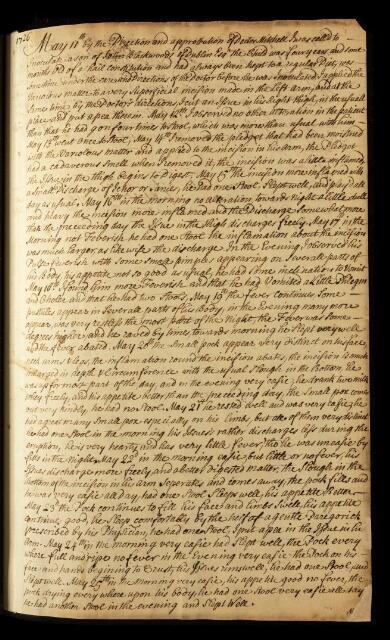 1726
May 11th by the Direction and approbation of Doctor Mitchell I was call'd to
Inoculate a son of Blackwood's of Dublin Esqr the Child was four years and some
months old of a hail constitution and had always been kept to a regular Diet, was
sometime under the care and Directions of the Doctor before she was Innoculated; I applied the
Variolous matter to a very superficial incision made in the left arm, and at the
same time by the Doctors directions, I cut an Issue in his Right thigh, in the usual
place, and put a pea therein. May 12th I observed no other alteration in the patient
than that he had gon four times to Stool, which was more than usual with him.
May 13th went once to Stool, May 14th I removed the pledgit that had been moistned
with the Variolous matter and applied to the incision in his arm, the Pledget
had a cadaverous smell when I removed it, the incision was a little inflamed,
the Issue in the thigh begins to Digest. May 15th the incision more inflamed with
a small Discharge of Ichor or Sanies, he had one Stool. Slept well, and play'd all
day as usual. May 16th in the morning no alteration towards night a little dull
and heavy the incision more inflamed and the Discharge somewhat more
than the preceeding day the Issue in the thigh discharges freely. May 17th in the
Morning not Feverish he had one Stool the inflamation about the incision
was much larger as likewise the discharge. In the Evening I observed his
Pulse feverish with some small pimples appearing on Severall parts of
his Body, his appetite not so good as usual, he had some inclinations to Vomit
May 18th I found him more Feverish and that he had Vomited a little Phlegm
and Choler and that he had two Stools, May 19th the fever continues some
pustilles appear in Severall parts of his body, in the evening many more
appear, was very restless the most part of the Night the Fever was some
degrees higher and he raved by times, towards morning he Slept very well
and the fever abated. May 20th the small pock appear very distinct on his face,
neck arms & legs, the inflamation round the incision abats, the incision is much
enlarged in depth & Circumference with the usual Slough in the bottom. he
was up for most part of the day, and in the evening very easie, he drank two milk
whey freely, and his appetite better than the preceeding day, the Small pox comes
out very kindly, he had no Stool. May 21st he rested well and was very easie, he
has a great many Small pox especially on his limbs, but all of them very distinct
he had one Stool in the morning his Issues rather discharges less during the
eruption, he is very hearty and has very little fever, tho he was uneasie by
fitts in the Night. May 22d in the morning easie, but little or no fever, his
Issue discharges more freely and a better digested matter, the Slough in the
bottom of the incision in his arm Seperates and comes away, the pock fills and
he was very easie all day, had one Stool Sleeps well, his appetite Better —
May 23 the Pock continues to fill his face and limbs Swell, his appetite
continues good, he Sleeps comfortably by the help of a gentle Paregorick
prescribed by his Physitian, he had one Stool. I put a pea in the Issue in his
Arm. May 24th in the morning very easie had Slept well, the Pock every
where fill and ripe no fever in the Evening very easie the Pock on his
face and hands begining to Crust, his Issues runs well, he had one Stool and
Slept well. May 25th in the morning very easie, his appetite good no fever, the
pock drying every where upon his body, he had one Stool very easie all day
he had another Stool in the evening and Slept Well.